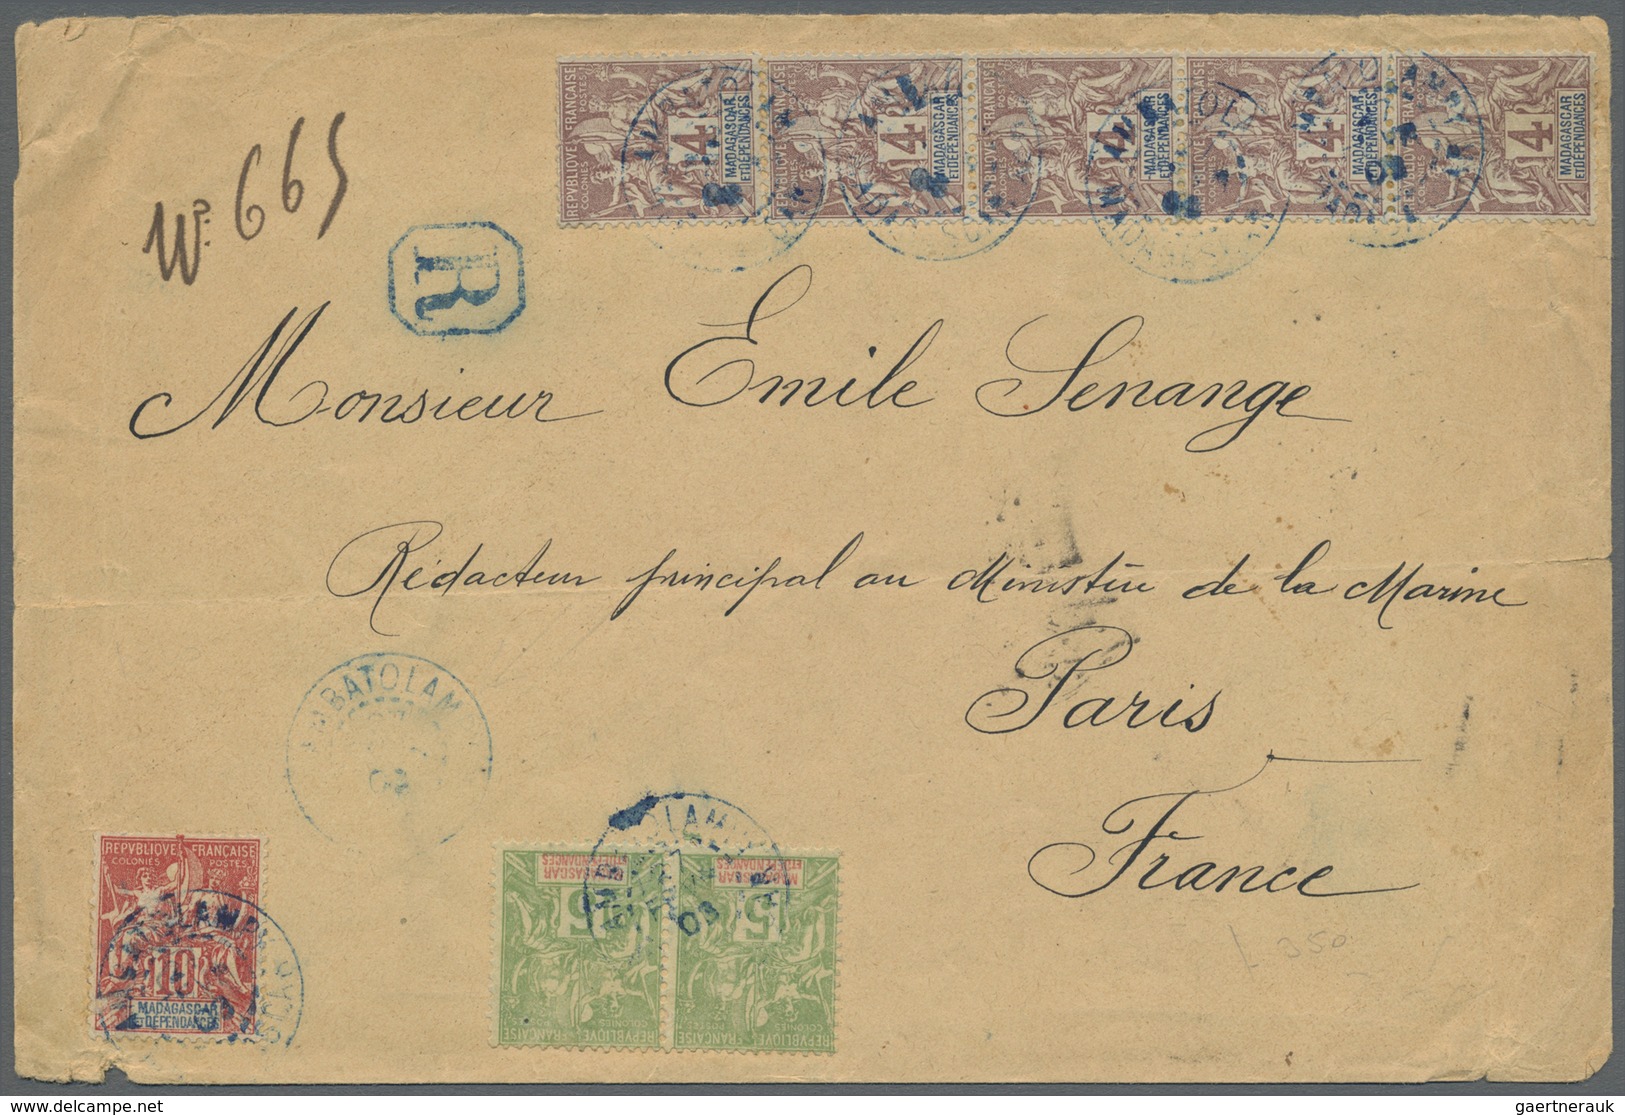 REPVBLIQVE FRANÇAISE
COLONIES POSTES
4
MADAGASCAR
ET DEPENDANCES
REPVBLIQVE FRANÇAISE
COLONIES POSTES
4
MADAGASCAR
ET DEPENDANCES
REPVBLIQVE FRANÇAISE
COLONIES POSTES
4
MADAGASCAR
ET DEPENDANCES
REPVBLIQVE FRANÇAISE
COLONIES POSTES
4
MADAGASCAR
ET DEPENDANCES
REPVBLIQVE FRANÇAISE
COLONIES POSTES
4
MADAGASCAR
ET DEPENDANCES
MADAGASCAR
No. 665
R
Monsieur Emile Senange
Rédacteur principal au Ministère de la Marine
Paris
France
MBATOLAM
03
REPVBLIQVE FRANÇAISE
COLONIES POSTES
10
MADAGASCAR
ET DÉPENDANCES
REPVBLIQVE FRANÇAISE
COLONIES POSTES
5
MADAGASCAR
ET DÉPENDANCES
REPVBLIQVE FRANÇAISE
COLONIES POSTES
5
MADAGASCAR
ET DÉPENDANCES
03
L 350
delcampe.net
gaertnerauk